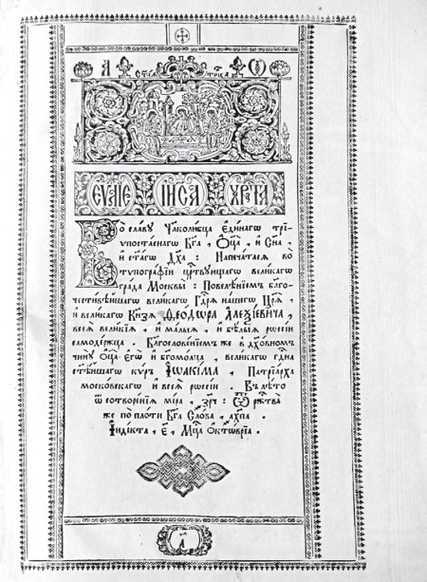 А С҃таѧ Тр҃ца Ѡ
ЕѴ҃ЛІЕ ІИ҃СА ХР҃ТА
Во славу Человѣколюбца Единагѡ трїѵпостаснагѡ
Бг҃а, Оц҃а, и Сн҃а,
и ст҃агѡ Дх҃а: Напечатасѧ во
тѵпографїи црⷭ҇твующагѡ великагѡ
града Москвы: Повелѣнїемъ благочестивѣйшагѡ
великагѡ Гдⷭ҇рѧ нашегѡ Цр҃ѧ,
и великагѡ Кнѧзѧ Ѳеодѡра Алеѯїевича,
всеѧ великїѧ, и малыѧ, и бѣлыѧ рѡссїи
самодержца. Благословенїемъ же в дх҃овномъ
чину Оц҃а егѡ и бг҃омолца, великагѡ гдⷭ҇на
ст҃ѣйшагѡ кѵръ Іѡакіма, Патрїарха
московскагѡ и всеѧ рѡссїи. Въ лѣто
ѿ сотворенїѧ мїра, Ѿ ржⷭ҇тва
же по плоти Бг҃а Слова, ахп҃а.
Індікта, Е҃, Мцⷭ҇а Октѡврїа.